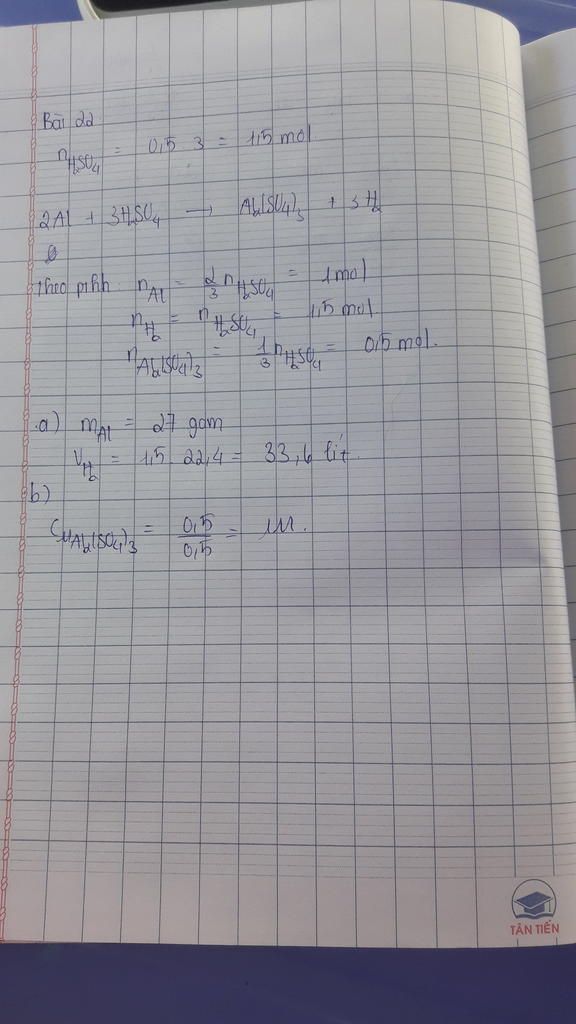 Bài 22
nH2SO4 = 0,5 . 3 = 1,5 mol
2Al + 3H2SO4 → Al2(SO4)3 + 3H2
Theo pthh: nAl = 2/3 nH2SO4 = 1 mol
nH2 = nH2SO4 = 1,5 mol.
nAl2(SO4)3 = 1/3 nH2SO4 = 0,5 mol.
a) mAl = 27 gam
VH2 = 1,5 . 22,4 = 33,6 lít.
b)
CMAl2(SO4)3 = 0,5/0,5 = 1M.
TÂN TIẾN